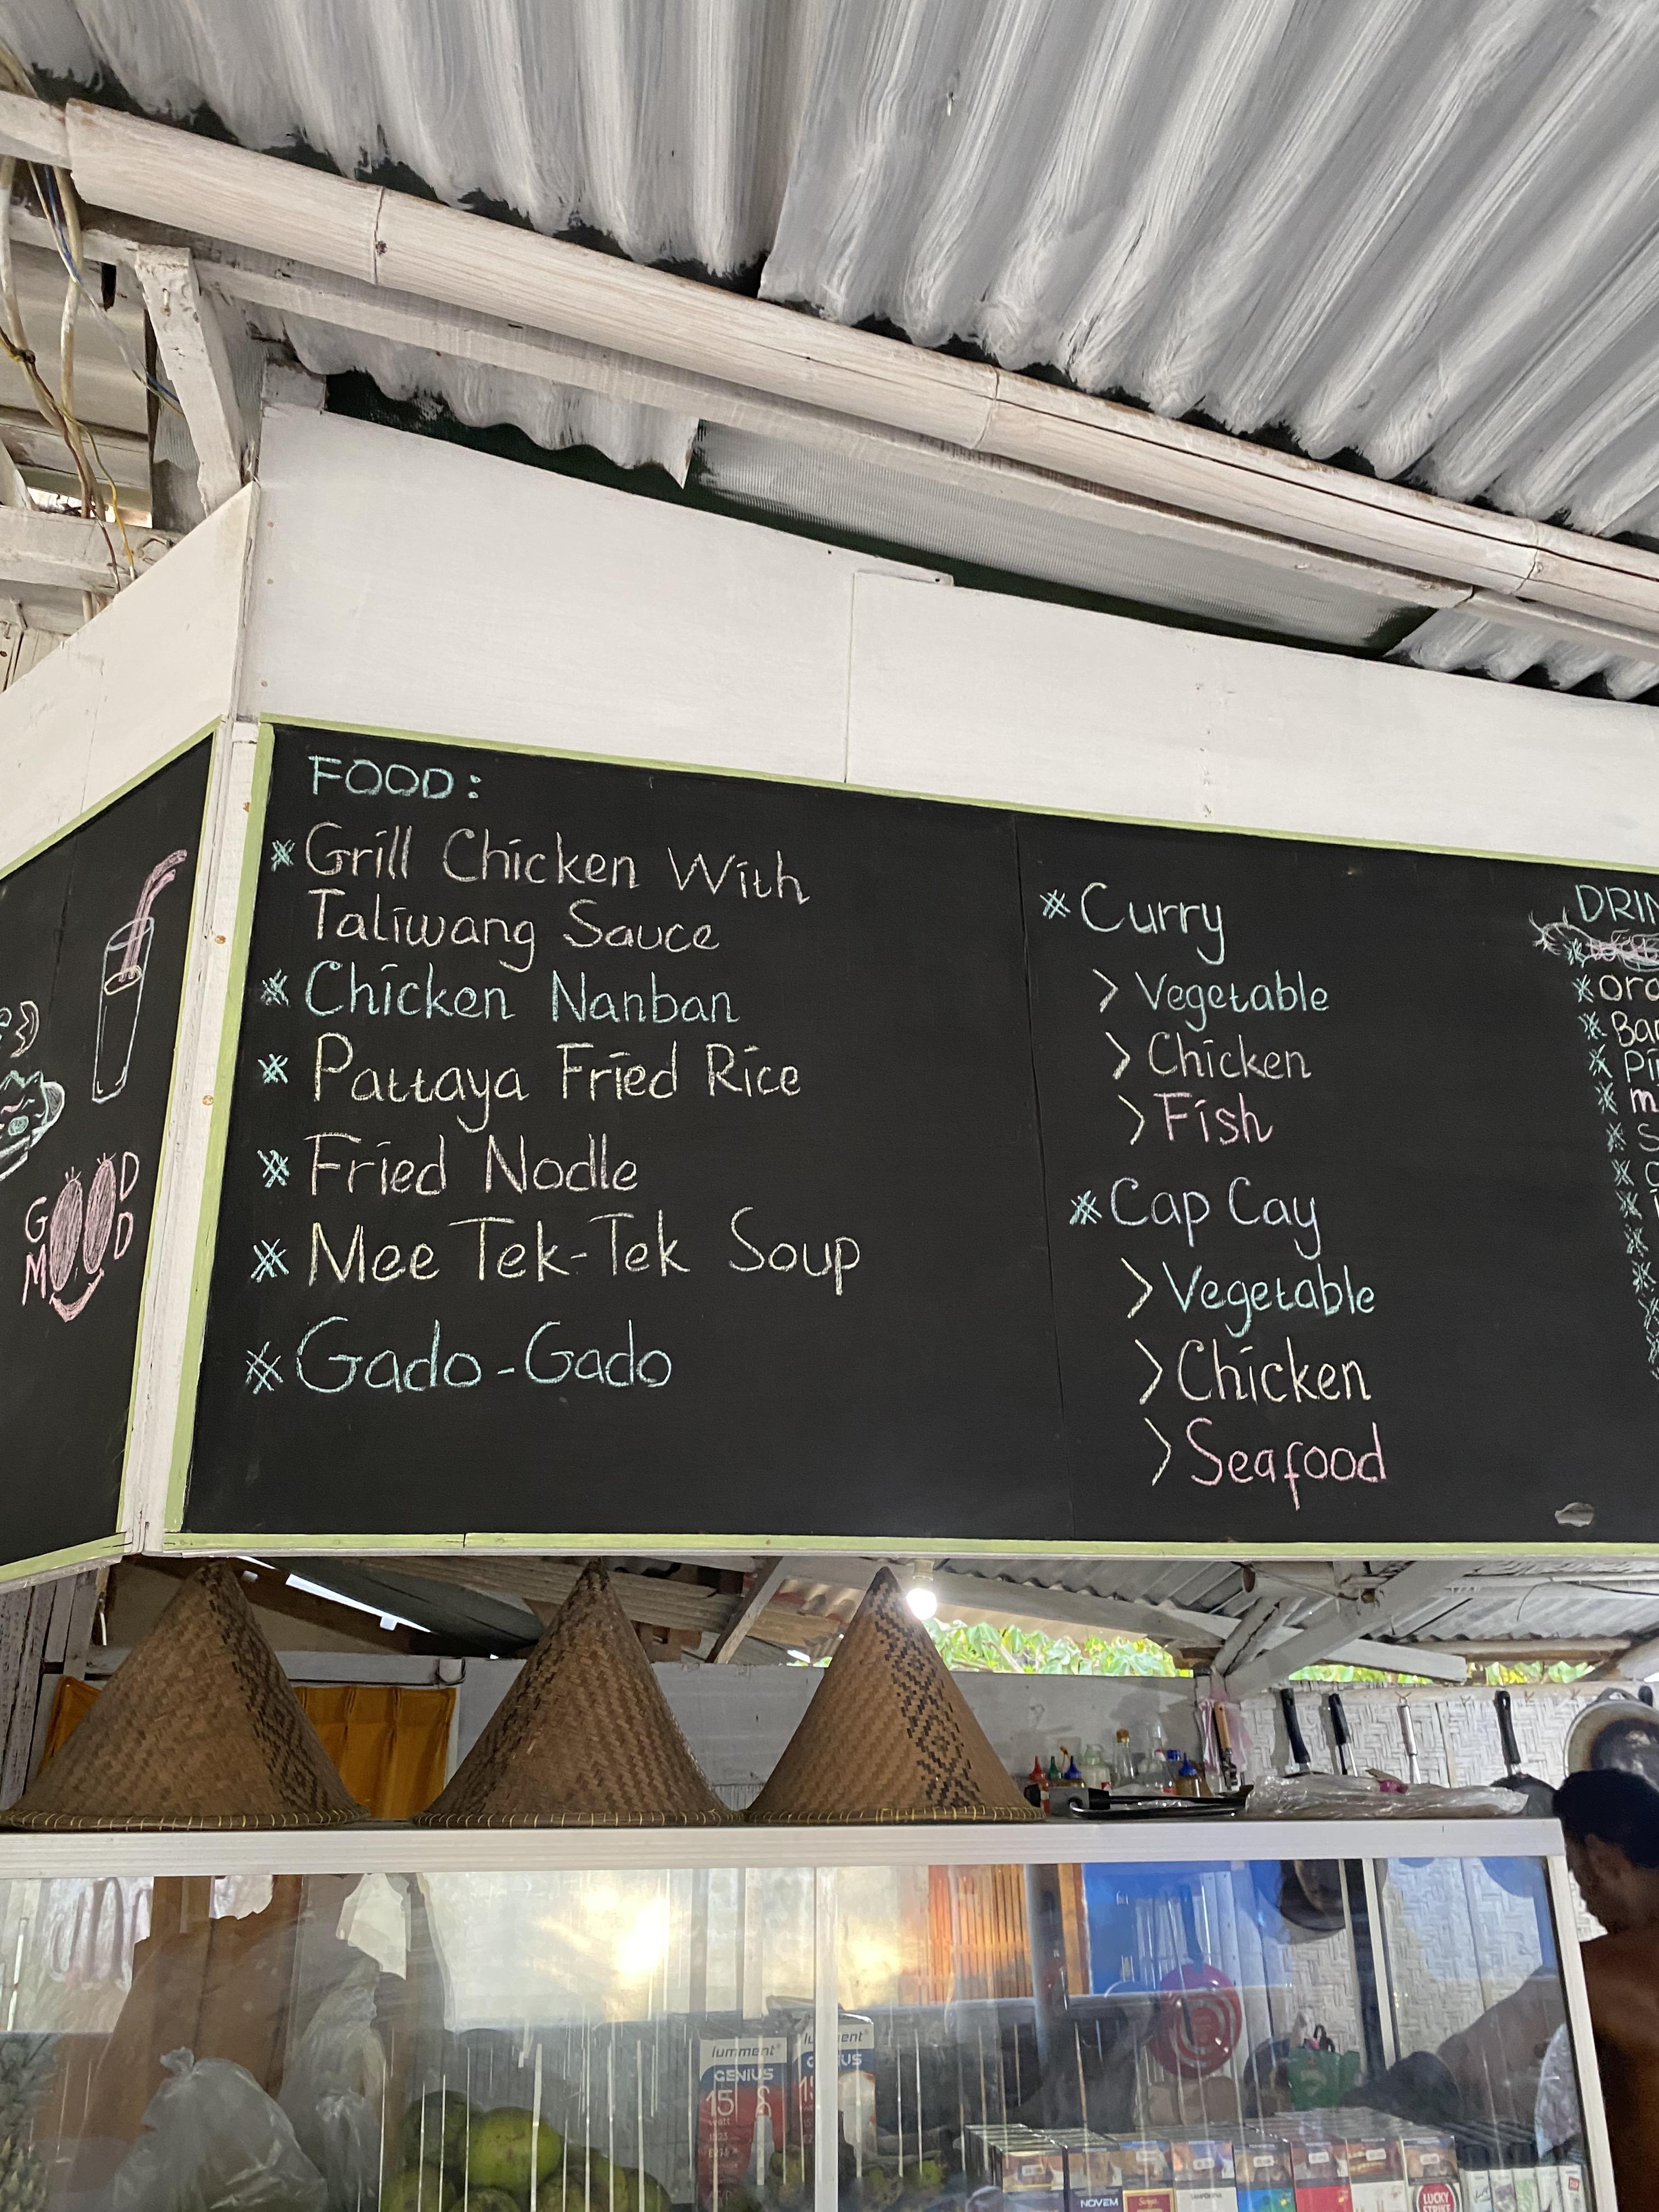 FOOD:
Grill Chicken With
Taliwang Sauce
Chicken Nanban
Pattaya Fried Rice
Fried Nodle
Mee Tek-Tek Soup
Gado-Gado
Curry
> Vegetable
> Chicken
> Fish
Cap Cay
> Vegetable
> Chicken
> Seafood
GOOD
MOOD
lumment
GENIUS
15
watt
NOVEM
LUCKY
STRIKE